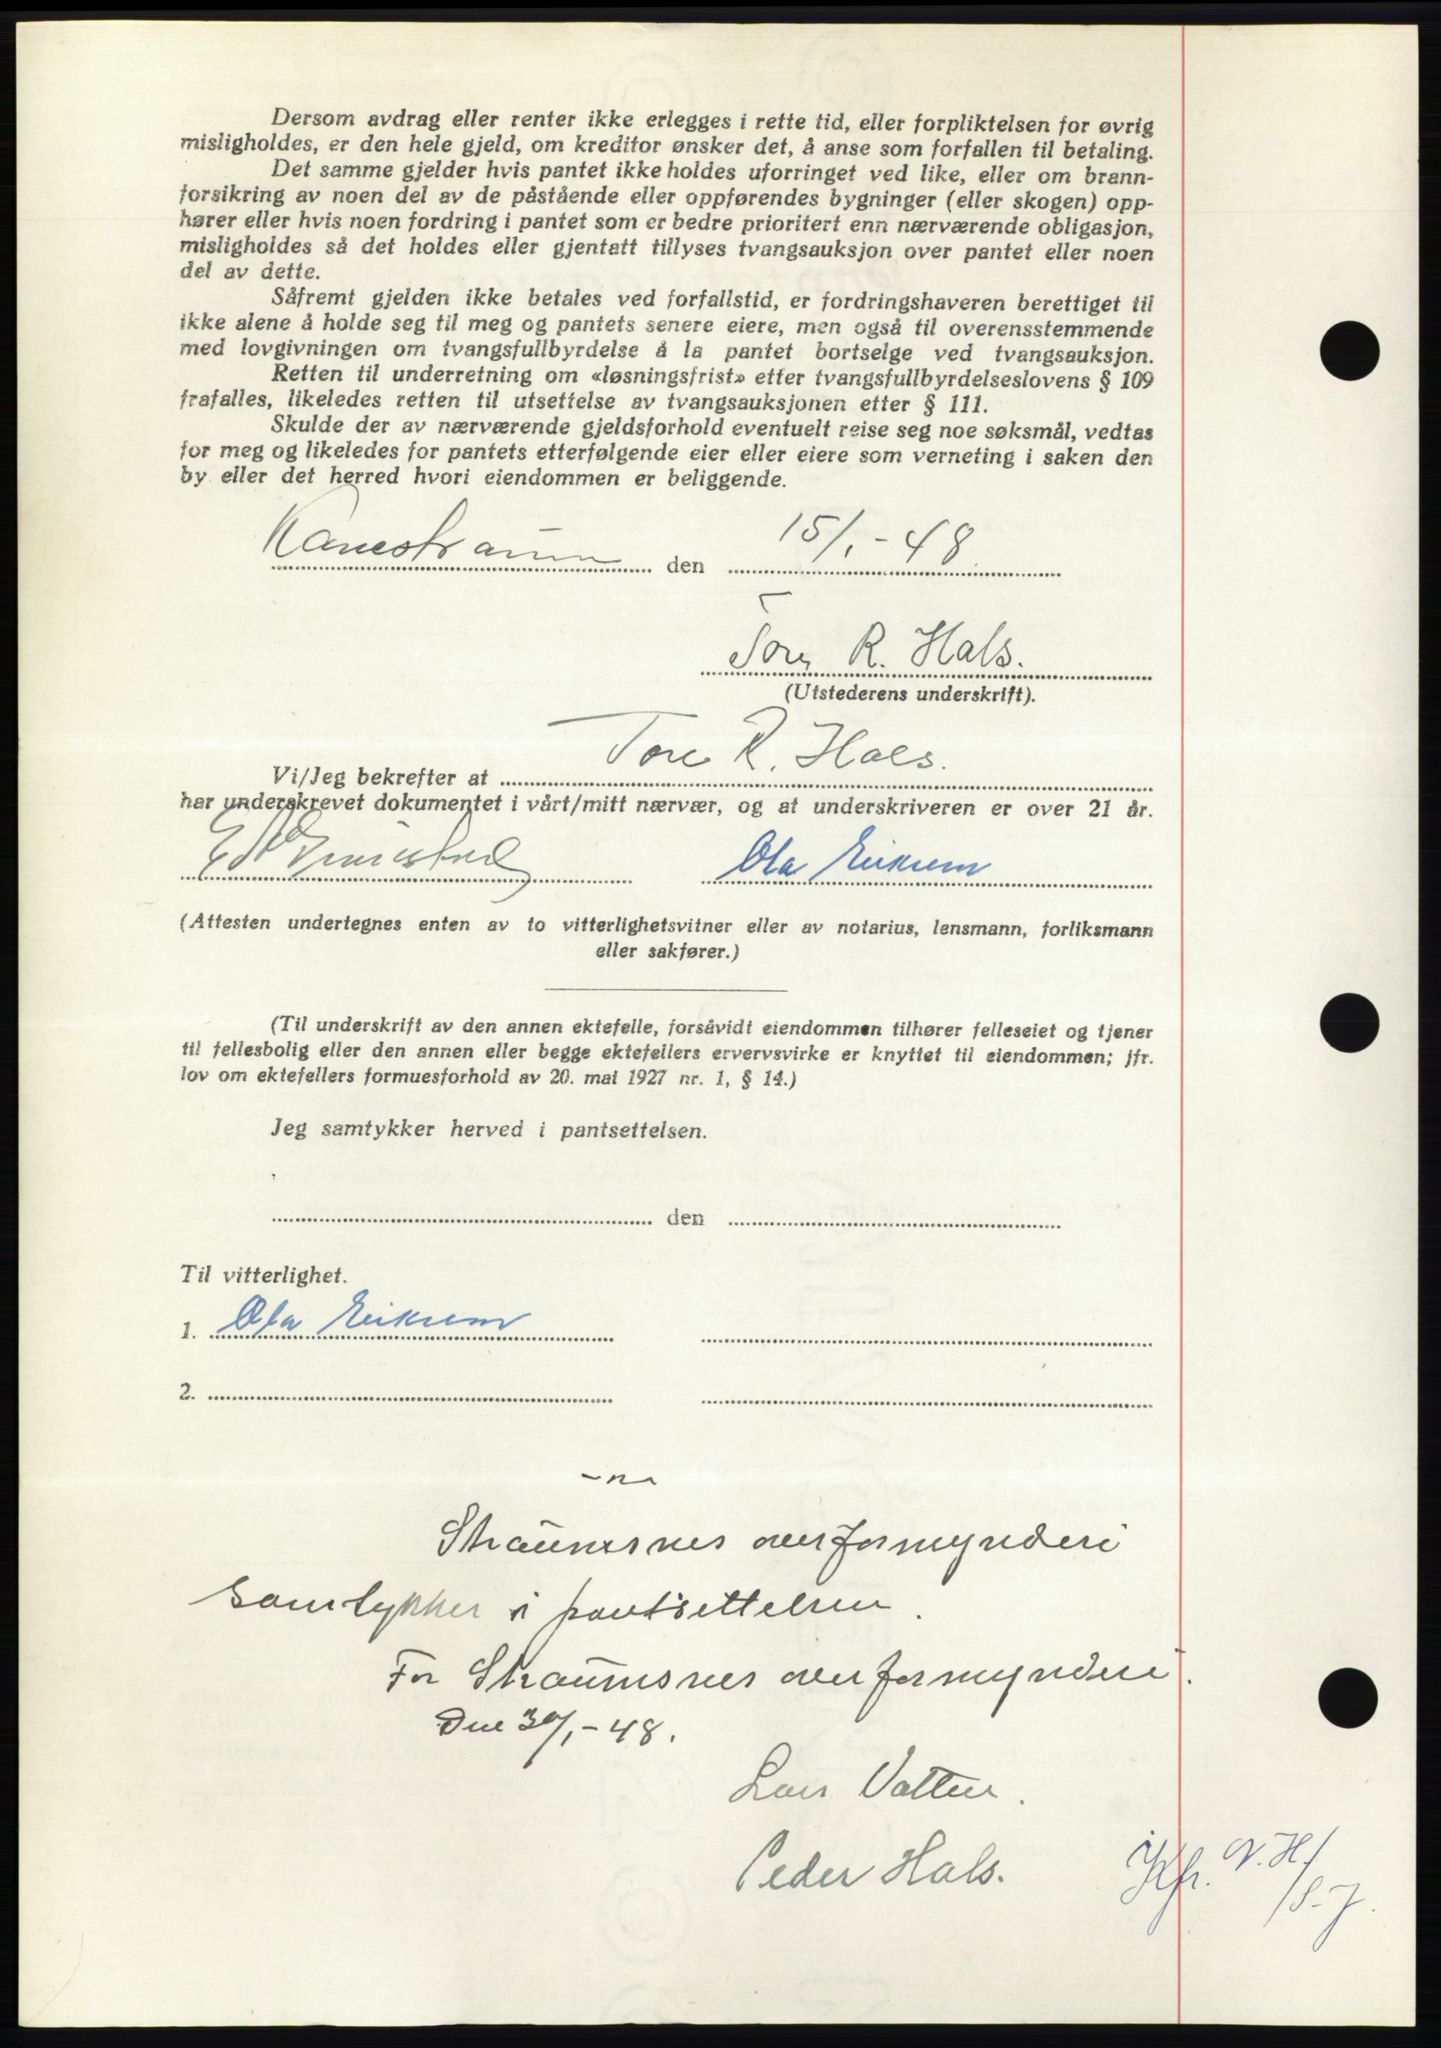 Dersom avdrag eller renter ikke erlegges i rette tid, eller forpliktelsen for øvrig
misligholdes, er den hele gjeld, om kreditor ønsker det, å anse som forfallen til betaling.
Det samme gjelder hvis pantet ikke holdes uforringet ved like, eller om brann-
forsikring av noen del av de påstående eller oppførendes bygninger (eller skogen) opp-
hører eller hvis noen fordring i pantet som er bedre prioritert enn nærværende obligasjon,
misligholdes så det holdes eller gjentatt tillyses tvangsauksjon over pantet eller noen
del av dette.
Såfremt gjelden ikke betales ved forfallstid, er fordringshaveren berettiget til
ikke alene å holde seg til meg og pantets senere eiere, men også til overensstemmende
med lovgivningen om tvangsfullbyrdelse å la pantet bortselge ved tvangsauksjon.
Retten til underretning om «løsningsfrist» etter tvangsfullbyrdelseslovens § 109
frafalles, likeledes retten til utsettelse av tvangsauksjonen etter § 111.
Skulde der av nærværende gjeldsforhold eventuelt reise seg noe søksmål, vedtas
for meg og likeledes for pantets etterfølgende eier eller eiere som verneting i saken den
by eller det herred hvori eiendommen er beliggende.
Kanestraum den 15/1-48
Tore R. Hals.
(Utstederens underskrift).
Vi/Jeg bekrefter at Tore R. Hals.
har underskrevet dokumentet i vårt/mitt nærvær, og at underskriveren er over 21 år.
Ola Eikrem
(Attesten undertegnes enten av to vitterlighetsvitner eller av notarius, lensmann, forliksmann
eller sakfører.)
(Til underskrift av den annen ektefelle, forsåvidt eiendommen tilhører felleseiet og tjener
til fellesbolig eller den annen eller begge ektefellers ervervsvirke er knyttet til eiendommen; jfr.
lov om ektefellers formuesforhold av 20. mai 1927 nr. 1, § 14.)
Jeg samtykker herved i pantsettelsen.
den
Til vitterlighet.
1. Ola Eikrem
2.
Straumsnes overformynderi
samtykker i pantsettelsen.
For Straumsnes overformynderi.
Den 30/1-48.
Lars Vatten.
Peder Hals.
Kfr. N. H/